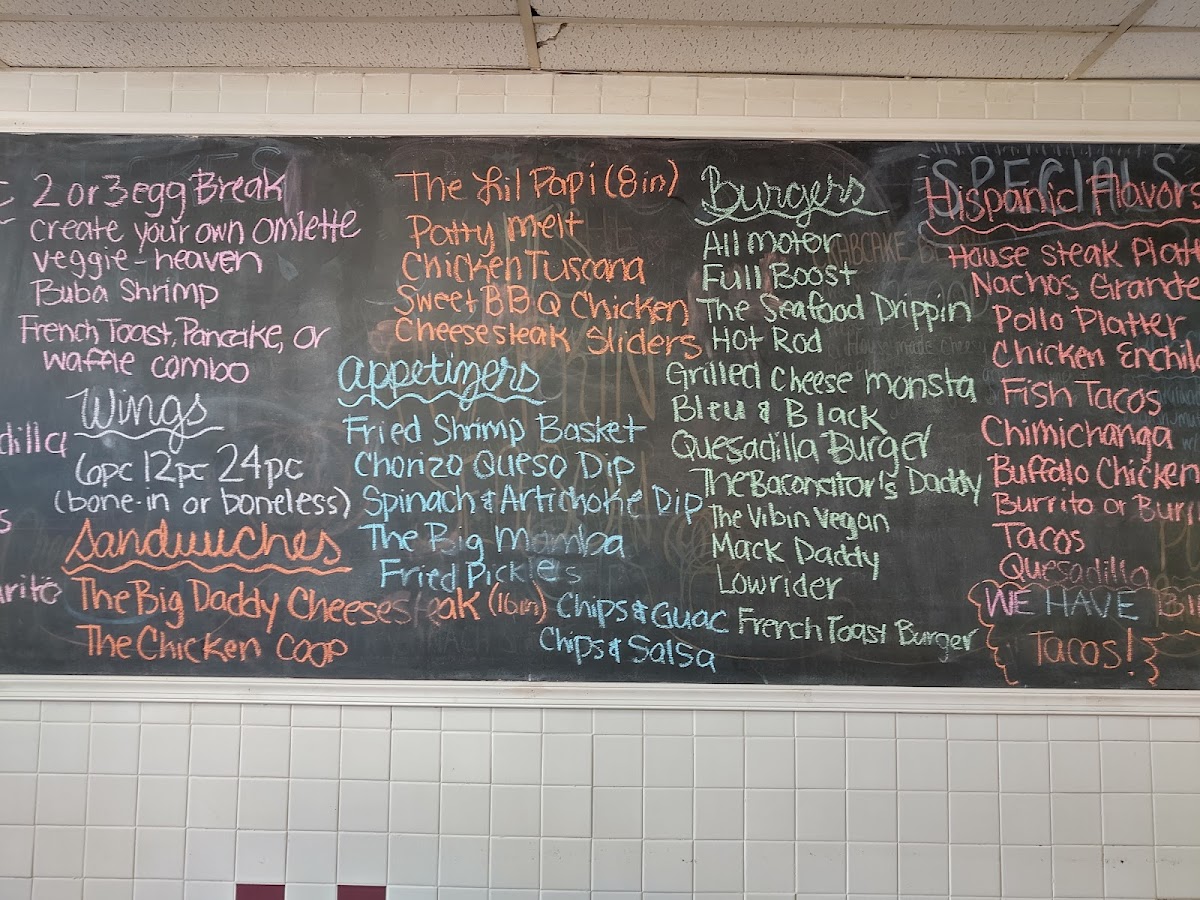 2 or 3 egg Break
create your own omlette
veggie-heaven
Buba Shrimp
French Toast, Pancake, or
waffle combo
Wings
6pc 12pc 24pc
(bone-in or boneless)
Sandwiches
The Big Daddy Cheesesteak (16in)
The Chicken Coop
The Lil Papi (8in)
Patty melt
Chicken Tuscana
Sweet BBQ Chicken
Cheesesteak Sliders
Appetizers
Fried Shrimp Basket
Chorizo Queso Dip
Spinach & Artichoke Dip
The Big Mamba
Fried Pickles
Chips & Guac
Chips & Salsa
Burgers
All motor
Full Boost
The Seafood Drippin
Hot Rod
Grilled Cheese monsta
Bleu & Black
Quesadilla Burger
The Baconator's Daddy
The Vibin Vegan
Mack Daddy
Lowrider
French Toast Burger
SPECIALS
Hispanic Flavors
House Steak Platt
Nachos Grande
Pollo Platter
Chicken Enchil
Fish Tacos
Chimichanga
Buffalo Chicken
Burrito or Burr
Tacos
Quesadilla
WE HAVE
Tacos!